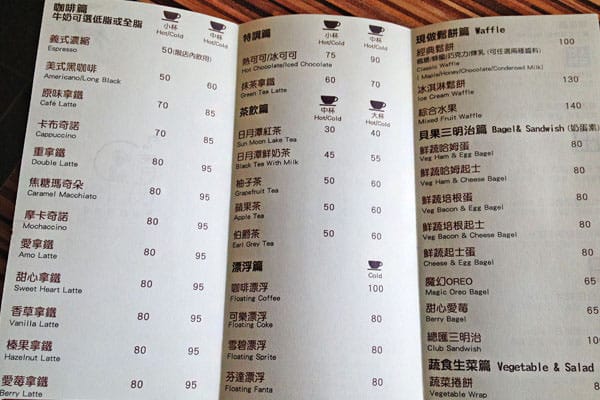 咖啡篇
牛奶可選低脂或全脂
小杯 中杯
Hot/Cold Hot/Cold
義式濃縮 50(限店內飲用)
Espresso
美式黑咖啡 50 60
Americano/Long Black
原味拿鐵 70 85
Café Latte
卡布奇諾 70 85
Cappuccino
重拿鐵 80 95
Double Latte
焦糖瑪奇朵 80 95
Caramel Macchiato
摩卡奇諾 80 95
Mochaccino
愛拿鐵 80 95
Amo Latte
甜心拿鐵 80 95
Sweet Heart Latte
香草拿鐵 80 95
Vanilla Latte
榛果拿鐵 80 95
Hazelnut Latte
愛莓拿鐵 80 95
Berry Latte
特調篇
小杯 中杯
Hot/Cold Hot/Cold
熱可可/冰可可 75 90
Hot Chocolate/Iced Chocolate
抹茶拿鐵 50 60
Green Tea Latte
茶飲篇
中杯 大杯
Hot/Cold Hot/Cold
日月潭紅茶 30 40
Sun Moon Lake Tea
日月潭鮮奶茶 45 55
Black Tea With Milk
柚子茶 50 60
Grapefruit Tea
蘋果茶 50 60
Apple Tea
伯爵茶 50 60
Earl Grey Tea
漂浮篇
Cold
咖啡漂浮 100
Floating Coffee
可樂漂浮 80
Floating Coke
雪碧漂浮 80
Floating Sprite
芬達漂浮 80
Floating Fanta
現做鬆餅篇 Waffle
經典鬆餅 100
楓糖/蜂蜜/巧克力/煉乳 (可任選兩種醬料)
Classic Waffle
( Maple/Honey/Chocolate/Condensed Milk)
冰淇淋鬆餅 130
Ice Cream Waffle
綜合水果 140
Mixed Fruit Waffle
貝果三明治篇 Bagel& Sandwish (奶蛋素)
鮮蔬哈姆蛋 80
Veg Ham & Egg Bagel
鮮蔬哈姆起士 80
Veg Ham & Cheese Bagel
鮮蔬培根蛋 80
Veg Bacon & Egg Bagel
鮮蔬培根起士 80
Veg Bacon & Cheese Bagel
鮮蔬起士蛋 80
Cheese & Egg Bagel
魔幻OREO 80
Magic Oreo Bagel
甜心愛莓 80
Berry Bagel
總匯三明治
Club Sandwish
蔬食生菜篇 Vegetable & Salad
蔬菜捲餅
Vegetable Wrap